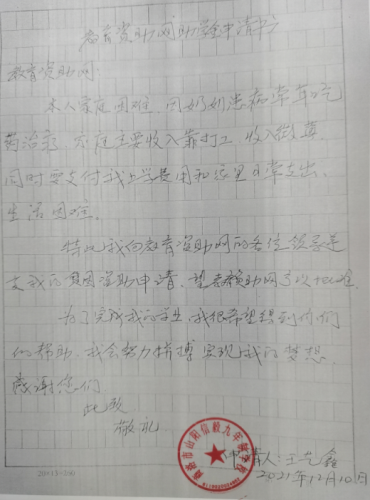 教育资助网助学金申请书
教育资助网:
本人家庭困难,因奶奶患病常年吃
药治疗,家庭主要收入靠打工,收入微薄,
同时要支付我上学费用和家里日常支出,
生活困难。
特此我向教育资助网的各位领导递
交我的贫困资助申请,望教育资助网予以批准
为了完成我的学业,我很希望得到你们
的帮助,我会努力拼搏实现我的梦想
感谢您们
此致
敬礼
申请人:王艺鑫
2021年12月10日